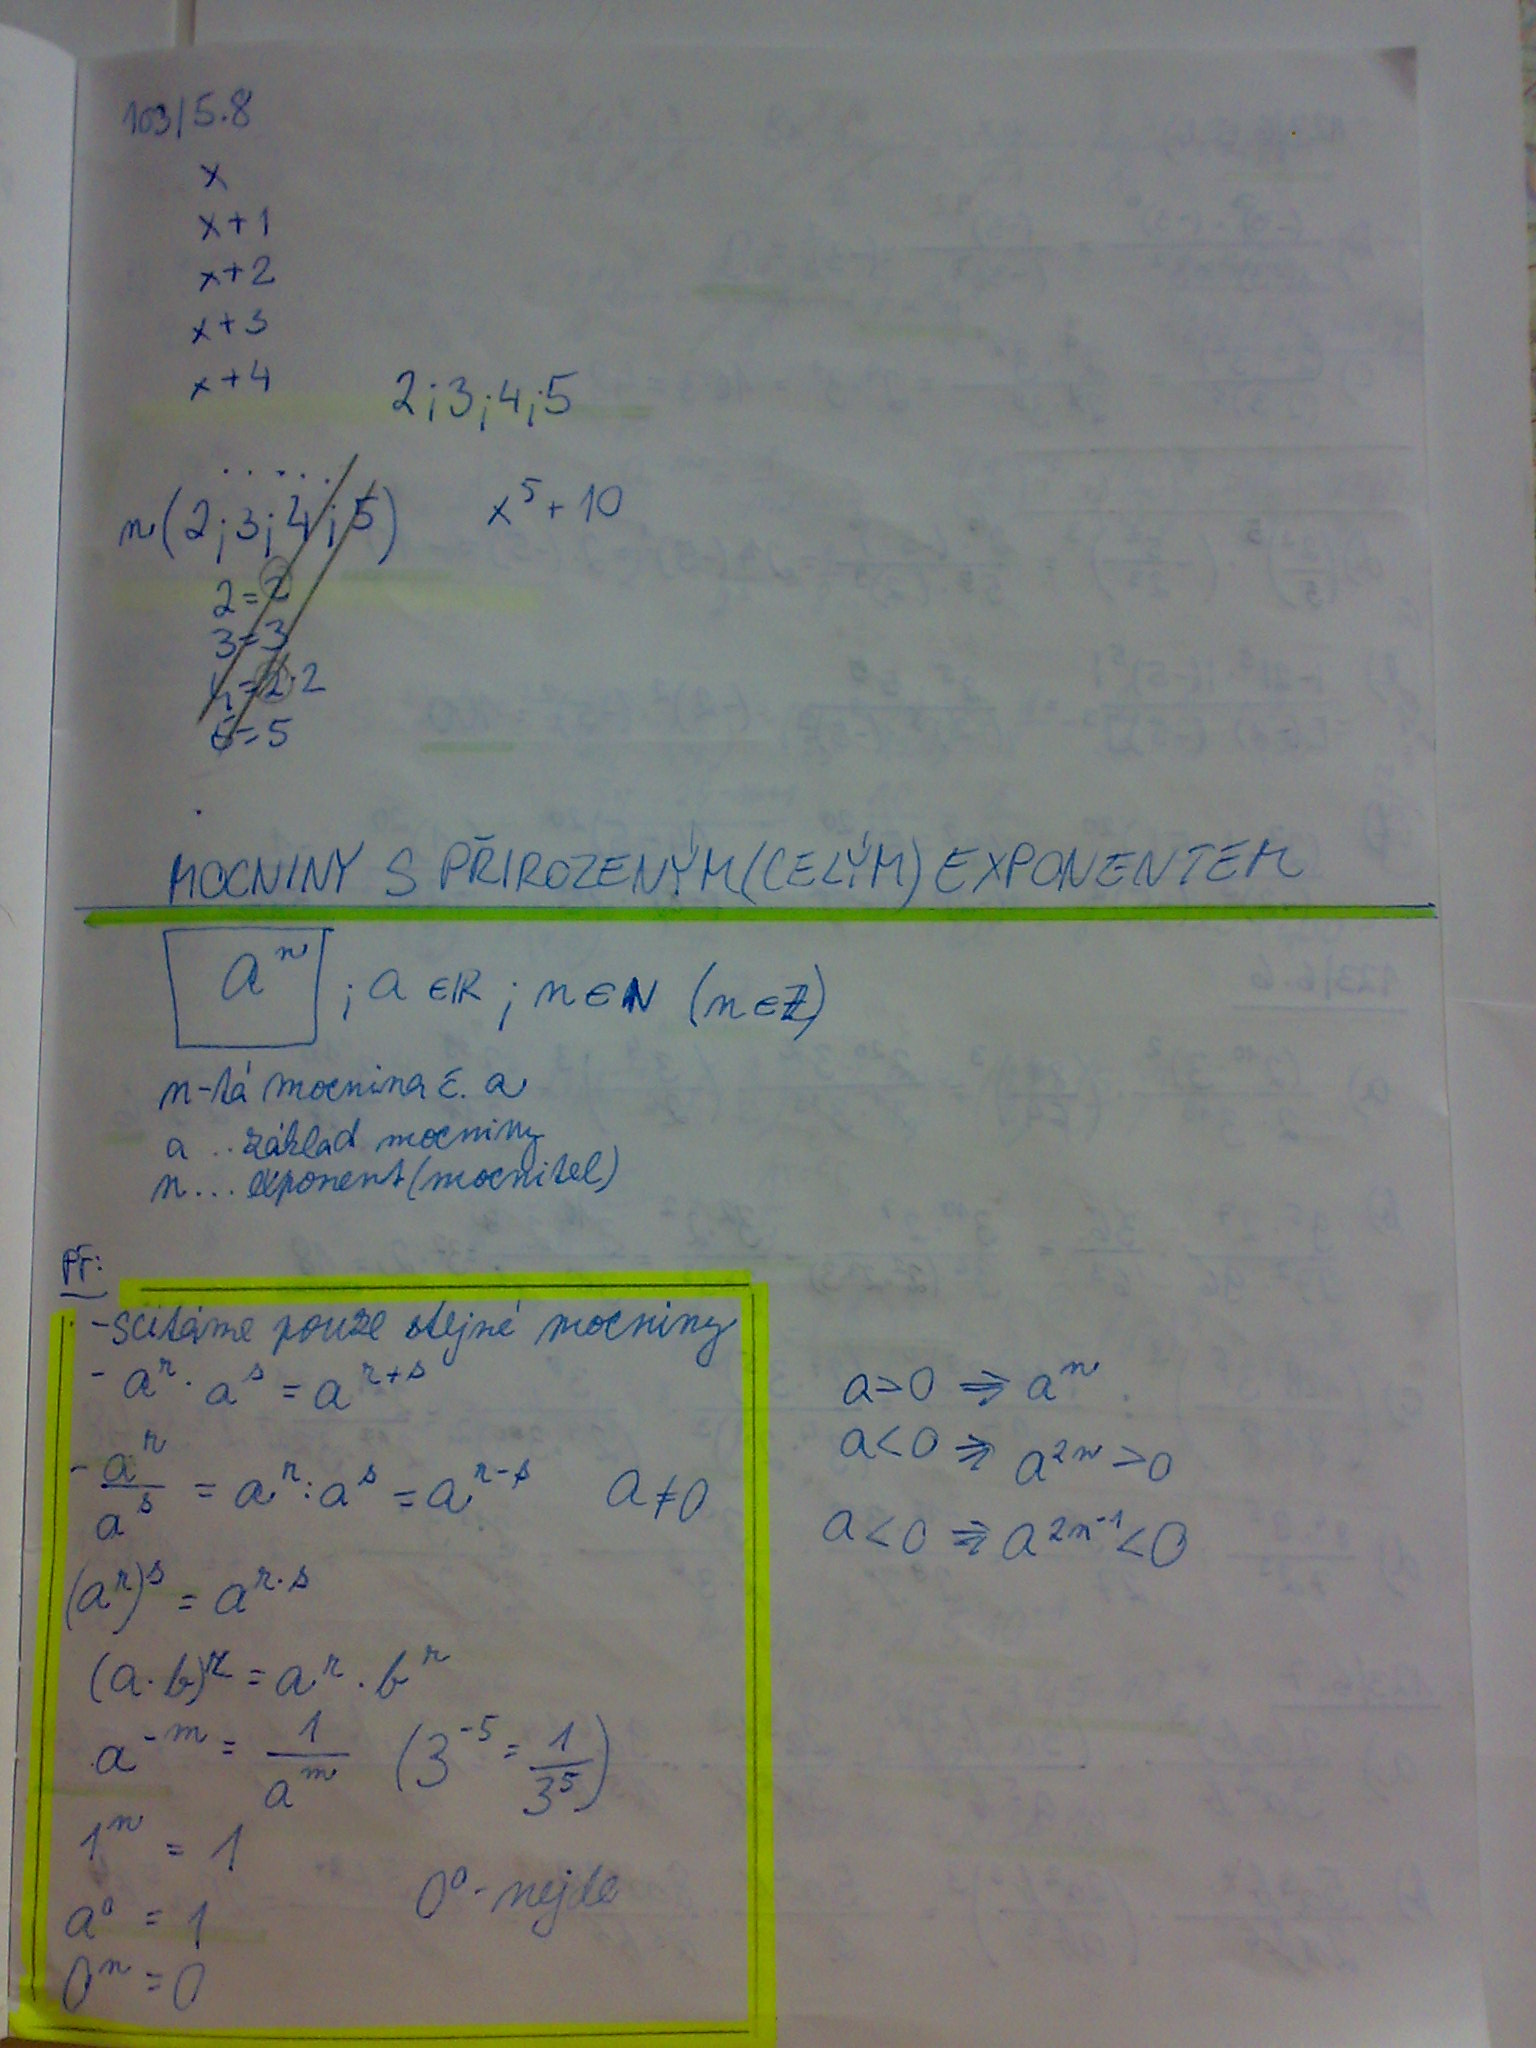 103/5.8
x
x+1
x+2
x+3
x+4
2;3;4;5
n(2;3;4;5)
x⁵+10
2=2
3=3
4=2·2
5=5
MOCNINY S PŘIROZENÝM (CELÝM) EXPONENTEM
aⁿ ; a ∈ R ; n ∈ N (n ∈ Z)
n-tá mocnina č. a
a .. základ mocniny
n... exponent (mocnitel)
Př:
- sčítáme pouze stejné mocniny
- a^r · a^s = a^(r+s)
- a^r / a^s = a^r : a^s = a^(r-s) a ≠ 0
(a^r)^s = a^(r·s)
(a·b)^r = a^r · b^r
a^(-m) = 1/a^m (3^(-5) = 1/3^5)
1ⁿ = 1
a⁰ = 1
0⁰ - nejde
0ⁿ = 0
a>0 ⇒ aⁿ
a<0 ⇒ a^(2n) > 0
a<0 ⇒ a^(2n-1) < 0